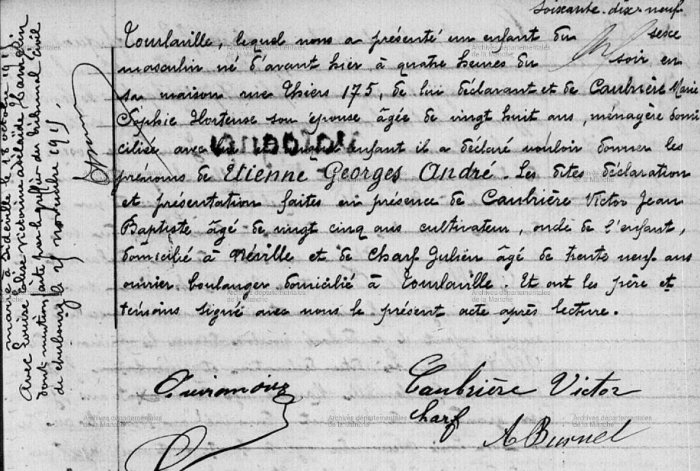 soixante-dix-neuf
Tourlaville, lequel nous a présenté un enfant du sexe
masculin né d'avant hier à quatre heures du soir en
sa maison rue Thiers 175, de lui déclarant et de Caubrière Marie
Sophie Hortense son épouse âgée de vingt huit ans, ménagère domi
ciliée avec enfant il a déclaré vouloir donner les
prénoms de Etienne Georges André. Les dites déclaration
et présentation faites en présence de Caubrière Victor Jean
Baptiste âgé de vingt cinq ans cultivateur, oncle de l'enfant,
domicilié à Néville et de Charf Julien âgé de trente neuf ans
ouvrier boulanger domicilié à Tourlaville. Et ont les père et
témoins signé avec nous le présent acte après lecture.
Caubrière Victor
Charf
A Burnel
marié à Sideville le 18 octobre 19
avec Louise Elise Victorine Adelaïde
dont mention faite par le greffier du Tribunal Civil
de Cherbourg le 25 novembre 19
Archives départementales
de la Manche